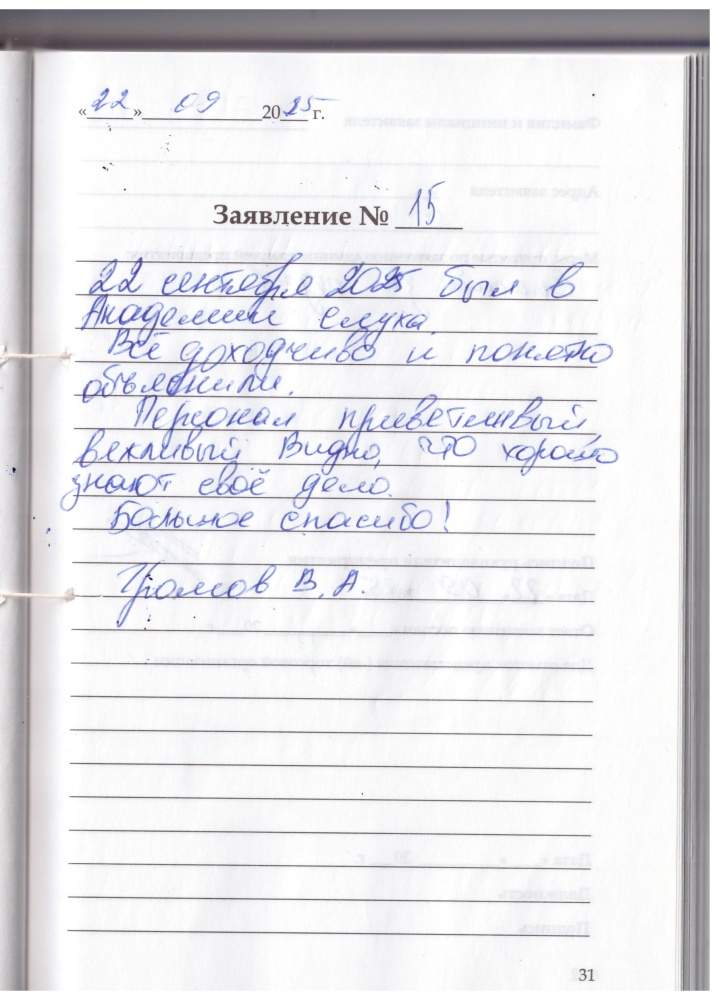 «22» 09 2025 г.
Заявление № 15
22 сентября 2025 был в
Академии слуха.
Всё доходчиво и понятно
объяснили.
Персонал приветливый
вежливый Видно, что хорошо
знают своё дело.
Большое спасибо!
В. А.
31